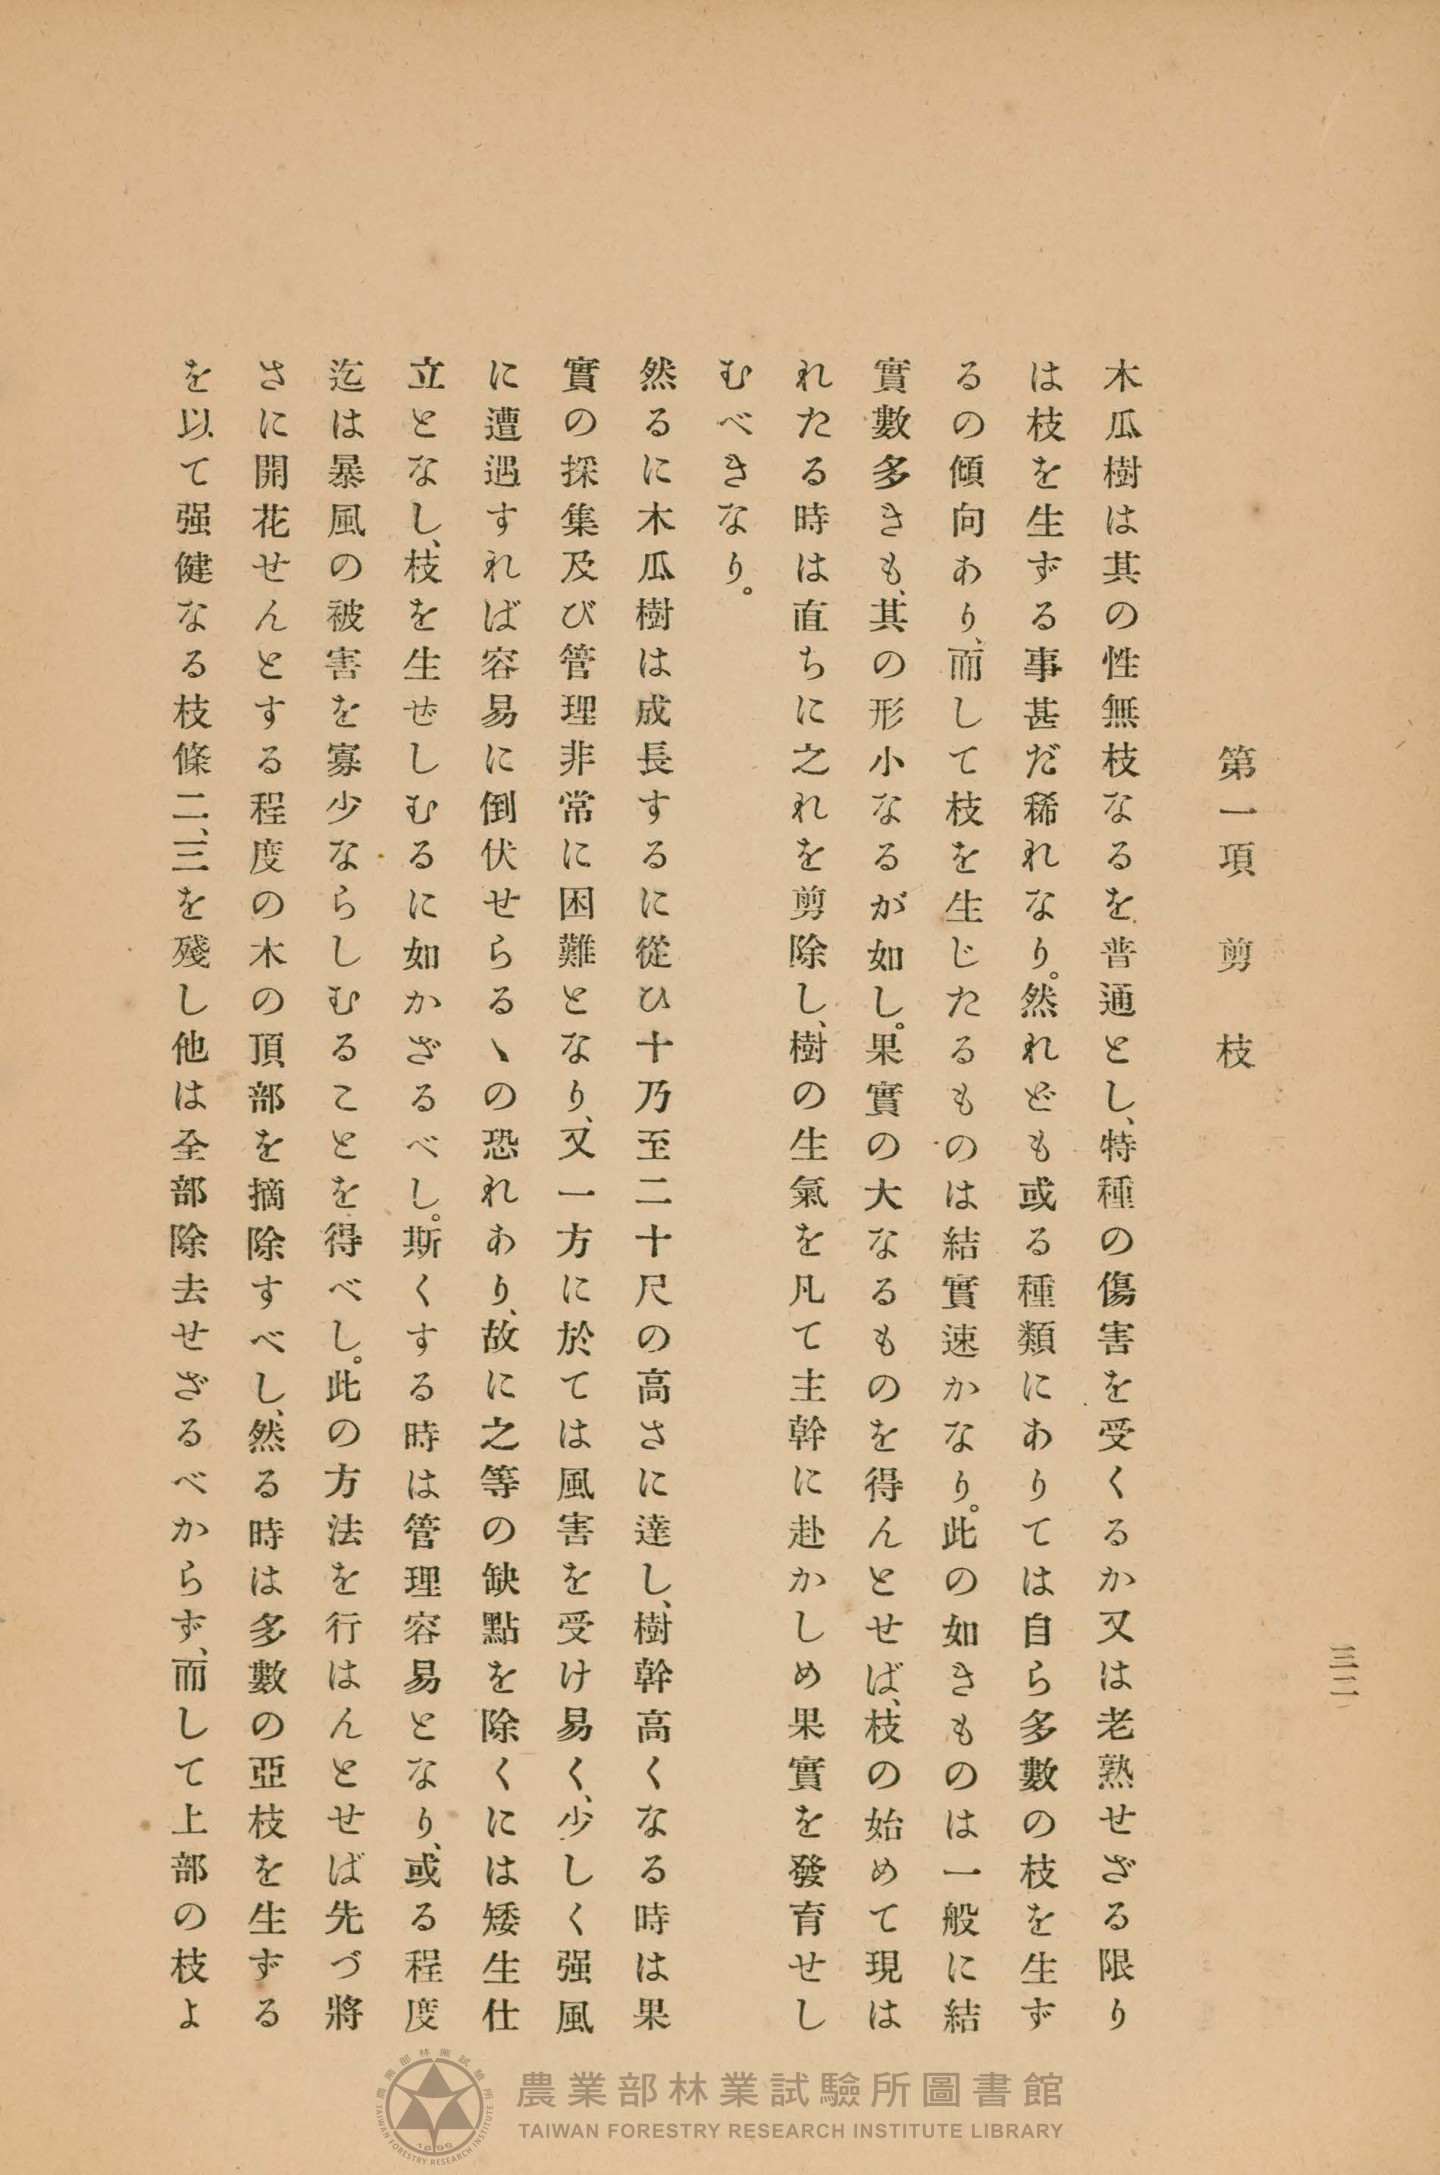 三二
第一項　剪　枝
木瓜樹は其の性無枝なるを普通とし、特種の傷害を受くるか又は老熟せざる限り
は枝を生ずる事甚だ稀れなり。然れども或る種類にありては自ら多數の枝を生ず
るの傾向あり、而して枝を生じたるものは結實速かなり。此の如きものは一般に結
實數多きも、其の形小なるが如し。果實の大なるものを得んとせば、枝の始めて現は
れたる時は直ちに之れを剪除し、樹の生氣を凡て主幹に赴かしめ果實を發育せし
むべきなり。
然るに木瓜樹は成長するに從ひ十乃至二十尺の高さに達し、樹幹高くなる時は果
實の採集及び管理非常に困難となり、又一方に於ては風害を受け易く、少しく强風
に遭遇すれば容易に倒伏せらるゝの恐れあり、故に之等の缺點を除くには矮生仕
立となし、枝を生ぜしむるに如かざるべし。斯くする時は管理容易となり、或る程度
迄は暴風の被害を寡少ならしむることを得べし。此の方法を行はんとせば先づ將
さに開花せんとする程度の木の頂部を摘除すべし、然る時は多數の亞枝を生ずる
を以て强健なる枝條二、三を殘し他は全部除去せざるべからず、而して上部の枝よ
農業部林業試驗所圖書館
TAIWAN FORESTRY RESEARCH INSTITUTE LIBRARY
農業部林業試驗所
TAIWAN FORESTRY RESEARCH INSTITUTE
1896